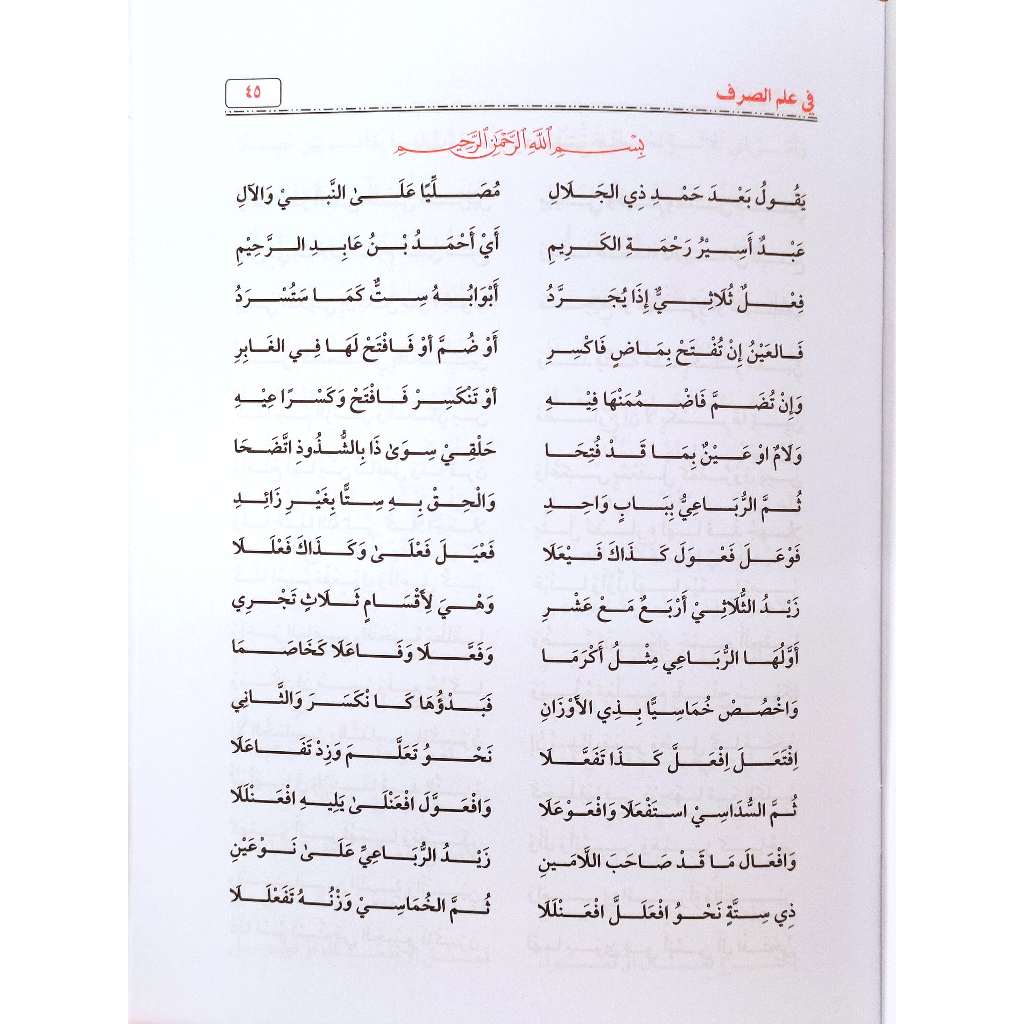 في علم الصرف ٤٥
بِسْمِ اللَّهِ الرَّحْمَٰنِ الرَّحِيمِ
يَقُولُ بَعْدَ حَمْدِ ذِي الجَلَالِ مُصَلِّيًا عَلَىٰ النَّبِيْ وَالآلِ
عَبْدٌ أَسِيْرُ رَحْمَةِ الكَرِيمِ أَيْ أَحْمَدُ بْنُ عَابِدِ الرَّحِيْمِ
فِعْلٌ ثُلَاثِيٌّ إِذَا يُجَرَّدُ أَبْوَابُهُ سِتٌّ كَمَا سَتُسْرَدُ
فَالعَيْنُ إِنْ تُفْتَحْ بِمَاضٍ فَاكْسِرِ أَوْ ضُمَّ أوْ فَافْتَحْ لَهَا فِي الغَابِرِ
وَإِنْ تُضَمَّ فَاضْمُمَنْهَا فِيْهِ أوْ تَنْكَسِرْ فَافْتَحْ وَكَسْرًا عِيْهِ
وَلَامٌ اوْ عَيْنٌ بِمَا قَدْ فُتِحَا حَلْقِيْ سِوَىٰ ذَا بِالشُّذُوذِ اتَّضَحَا
ثُمَّ الرُّبَاعِيُّ بِبَابٍ وَاحِدِ وَالْحِقْ بِهِ سِتًّا بِغَيْرِ زَائِدِ
فَوْعَلَ فَعْوَلَ كَذَاكَ فَيْعَلَا فَعْيَلَ فَعْلَىٰ وَكَذَاكَ فَعْلَلَا
زَيْدُ الثُّلَاثِيْ أَرْبَعٌ مَعْ عَشْرِ وَهْيَ لِأَقْسَامٍ ثَلَاثٍ تَجْرِي
أَوَّلُهَا الرُّبَاعِي مِثْلُ أَكْرَمَا وَفَعَّلَا وَفَاعَلَا كَخَاصَمَا
وَاخْصُصْ خُمَاسِيًّا بِذِي الأوْزَانِ فَبَدْؤُهَا كَانْكَسَرَ وَالثَّانِي
اِفْتَعَلَ اِفْعَلَّ كَذَا تَفَعَّلَا نَحْوُ تَعَلَّمَ وَزِدْ تَفَاعَلَا
ثُمَّ السُّدَاسِيْ استَفْعَلَا وَافْعَوْعَلَا وَافْعَوَّلَ افْعَنْلَىٰ يَلِيهِ افْعَنْلَلَا
وَافْعَالَ مَا قَدْ صَاحَبَ اللَّامَينِ زَيْدُ الرُّبَاعِيِّ عَلَىٰ نَوْعَيْنِ
ذِي سِتَّةٍ نَحْوُ افْعَلَلَّ افْعَنْلَلَا ثُمَّ الخُمَاسِيْ وَزْنُهُ تَفَعْلَلَا